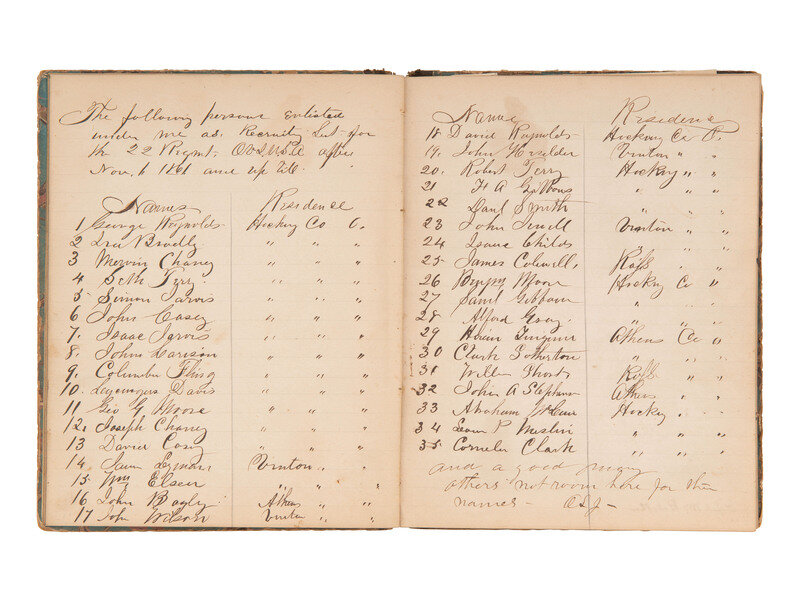 The following persons Enlisted
under me as Recruiting Lut for
the 22 Regmt. O.V.U.S.A after
Nov. 6 1861 and up till
Names Residence
1 George Reynolds Hocking Co O.
2 Ira Bradly " " "
3 Mervin Chaney " " "
4 Seth Terry " " "
5 Simon Jarvis " " "
6 John Casey " " "
7. Isaac Jarvis " " "
8. John Larison " " "
9. Columbus Fling " " "
10. Davis " " "
11 Geo G Moore " " "
12. Joseph Chaney " " "
13 David Casey " " "
14. Lymons Vinton " "
15. Wm Elsea " " "
16 John Bagly Athens " "
17 John Wilson Vinton " "
Names Residence
18. David Reynolds Hocking Co O.
19. John Vinton " "
20. Robert Terry Hocking " "
21 H A Gibbons " " "
22 Danl Smith " " "
23 John Jewell Vinton " "
24 Isaac Childs " " "
25 James Colwell, Ross " "
26 Benjm Moore Hocking Co "
27 Saml Gibbson " " "
28 Alford Gray " " "
29 Hiram Athens Co "
30 Clark Sotherton " " "
31 Will Ross " "
32 John A Stephens Athens " "
33 Abraham Hocking " "
34 P " " "
35 Cornelus Clark " " "
and a good many
others not room here for their
names -